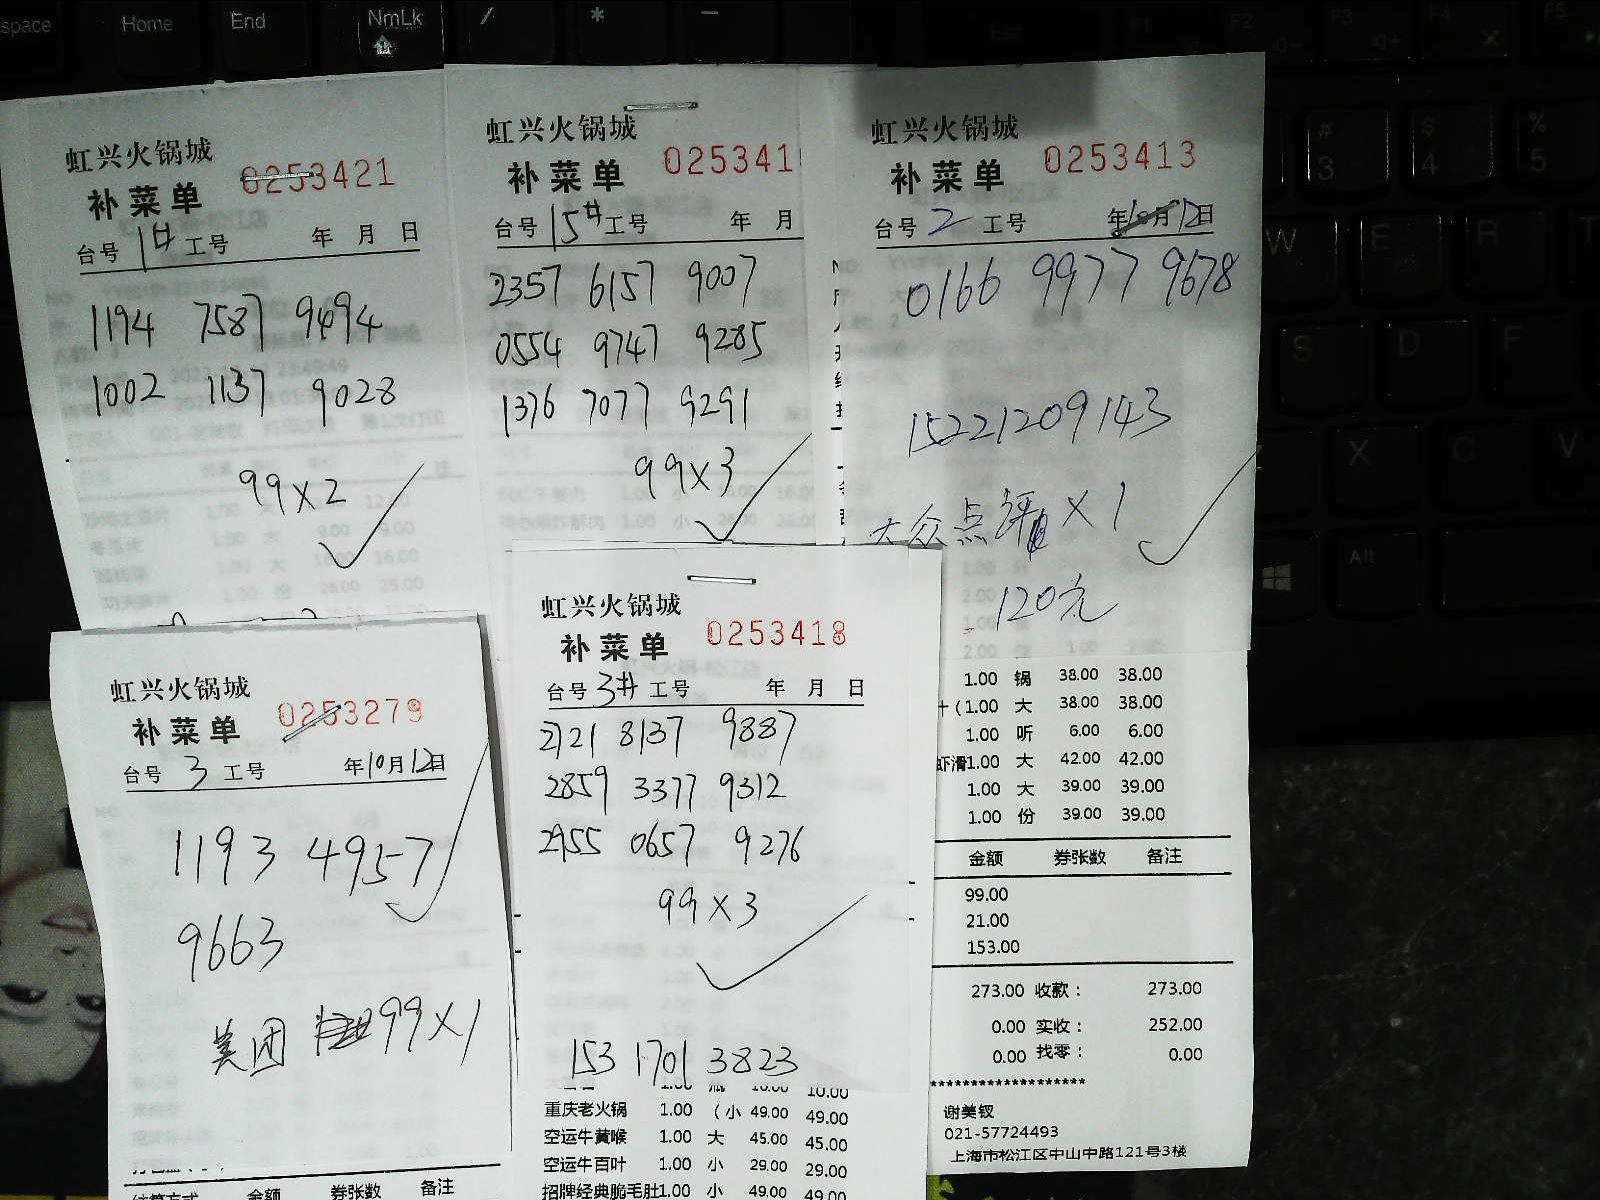 Home End NmLk / * -
# 3 $ 4 % 5
W E R T
S D F
X C V
Alt
虹兴火锅城
0253421
补菜单
台号 1# 工号 年 月 日
1194 7587 9494
1002 1137 9028
99×2
虹兴火锅城
025341
补菜单
台号 15# 工号 年 月
2357 6157 9007
0554 9747 9285
1376 7077 9291
99×3
虹兴火锅城
0253413
补菜单
台号 2 工号 年10月12日
0166 9977 9678
15221209143
大众点评 ×1
120元
1.00 锅 38.00 38.00
(1.00 大 38.00 38.00
1.00 听 6.00 6.00
虾滑1.00 大 42.00 42.00
1.00 大 39.00 39.00
1.00 份 39.00 39.00
金额 券张数 备注
99.00
21.00
153.00
273.00 收款: 273.00
0.00 实收: 252.00
0.00 找零: 0.00
********************
谢美钗
021-57724493
上海市松江区中山中路121号3楼
虹兴火锅城
0253279
补菜单
台号 3 工号 年10月12日
1193 4957
9663
美团 99×1
结算方式 金额 券张数 备注
虹兴火锅城
0253418
补菜单
台号 3# 工号 年 月 日
2721 8137 9887
2859 3377 9312
2955 0657 9276
99×3
153 1701 3823
1.00 瓶 10.00 10.00
重庆老火锅 1.00 (小 49.00 49.00
空运牛黄喉 1.00 大 45.00 45.00
空运牛百叶 1.00 小 29.00 29.00
招牌经典脆毛肚1.00 小 49.00 49.00